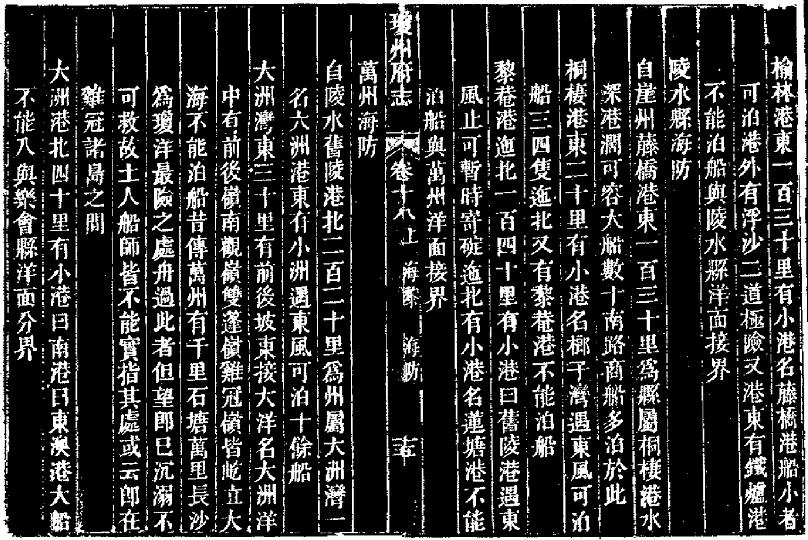 榆林港東一百三十里有小港名藤橋港船小者
可泊港外有浮沙二道極險又港東有鐵爐港
不能泊船與陵水縣洋面接界
陵水縣海防
自崖州藤橋港東一百三十里爲縣屬桐棲港水
深港濶可容大船數十南路商船多泊於此
桐棲港東二十里有小港名椰子灣遇東風可泊
船三四隻迤北又有黎菴港不能泊船
黎菴港迤北一百四十里有小港曰舊陵港遇東
風止可暫時寄碇迤北有小港名蓮塘港不能
泊船與萬州洋面接界
瓊州府志
卷十八上 海黎 海防
萬州海防
自陵水舊陵港北二百二十里爲州屬大洲灣一
名大洲港東有小洲遇東風可泊十餘船
大洲灣東三十里有前後坡東接大洋名大洲洋
中有前後嶺南觀嶺雙蓬嶺雞冠嶺皆屹立大
海不能泊船昔傳萬州有千里石塘萬里長沙
爲瓊洋最險之處舟過此者但望卽已沉溺不
可救故土人船師皆不能實指其處或云卽在
雞冠諸島之間
大洲港北四十里有小港曰南港曰東澳港大船
不能入與樂會縣洋面分界